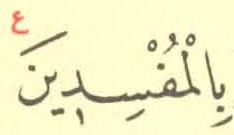 بِالْمُفْسِدِينَ ع